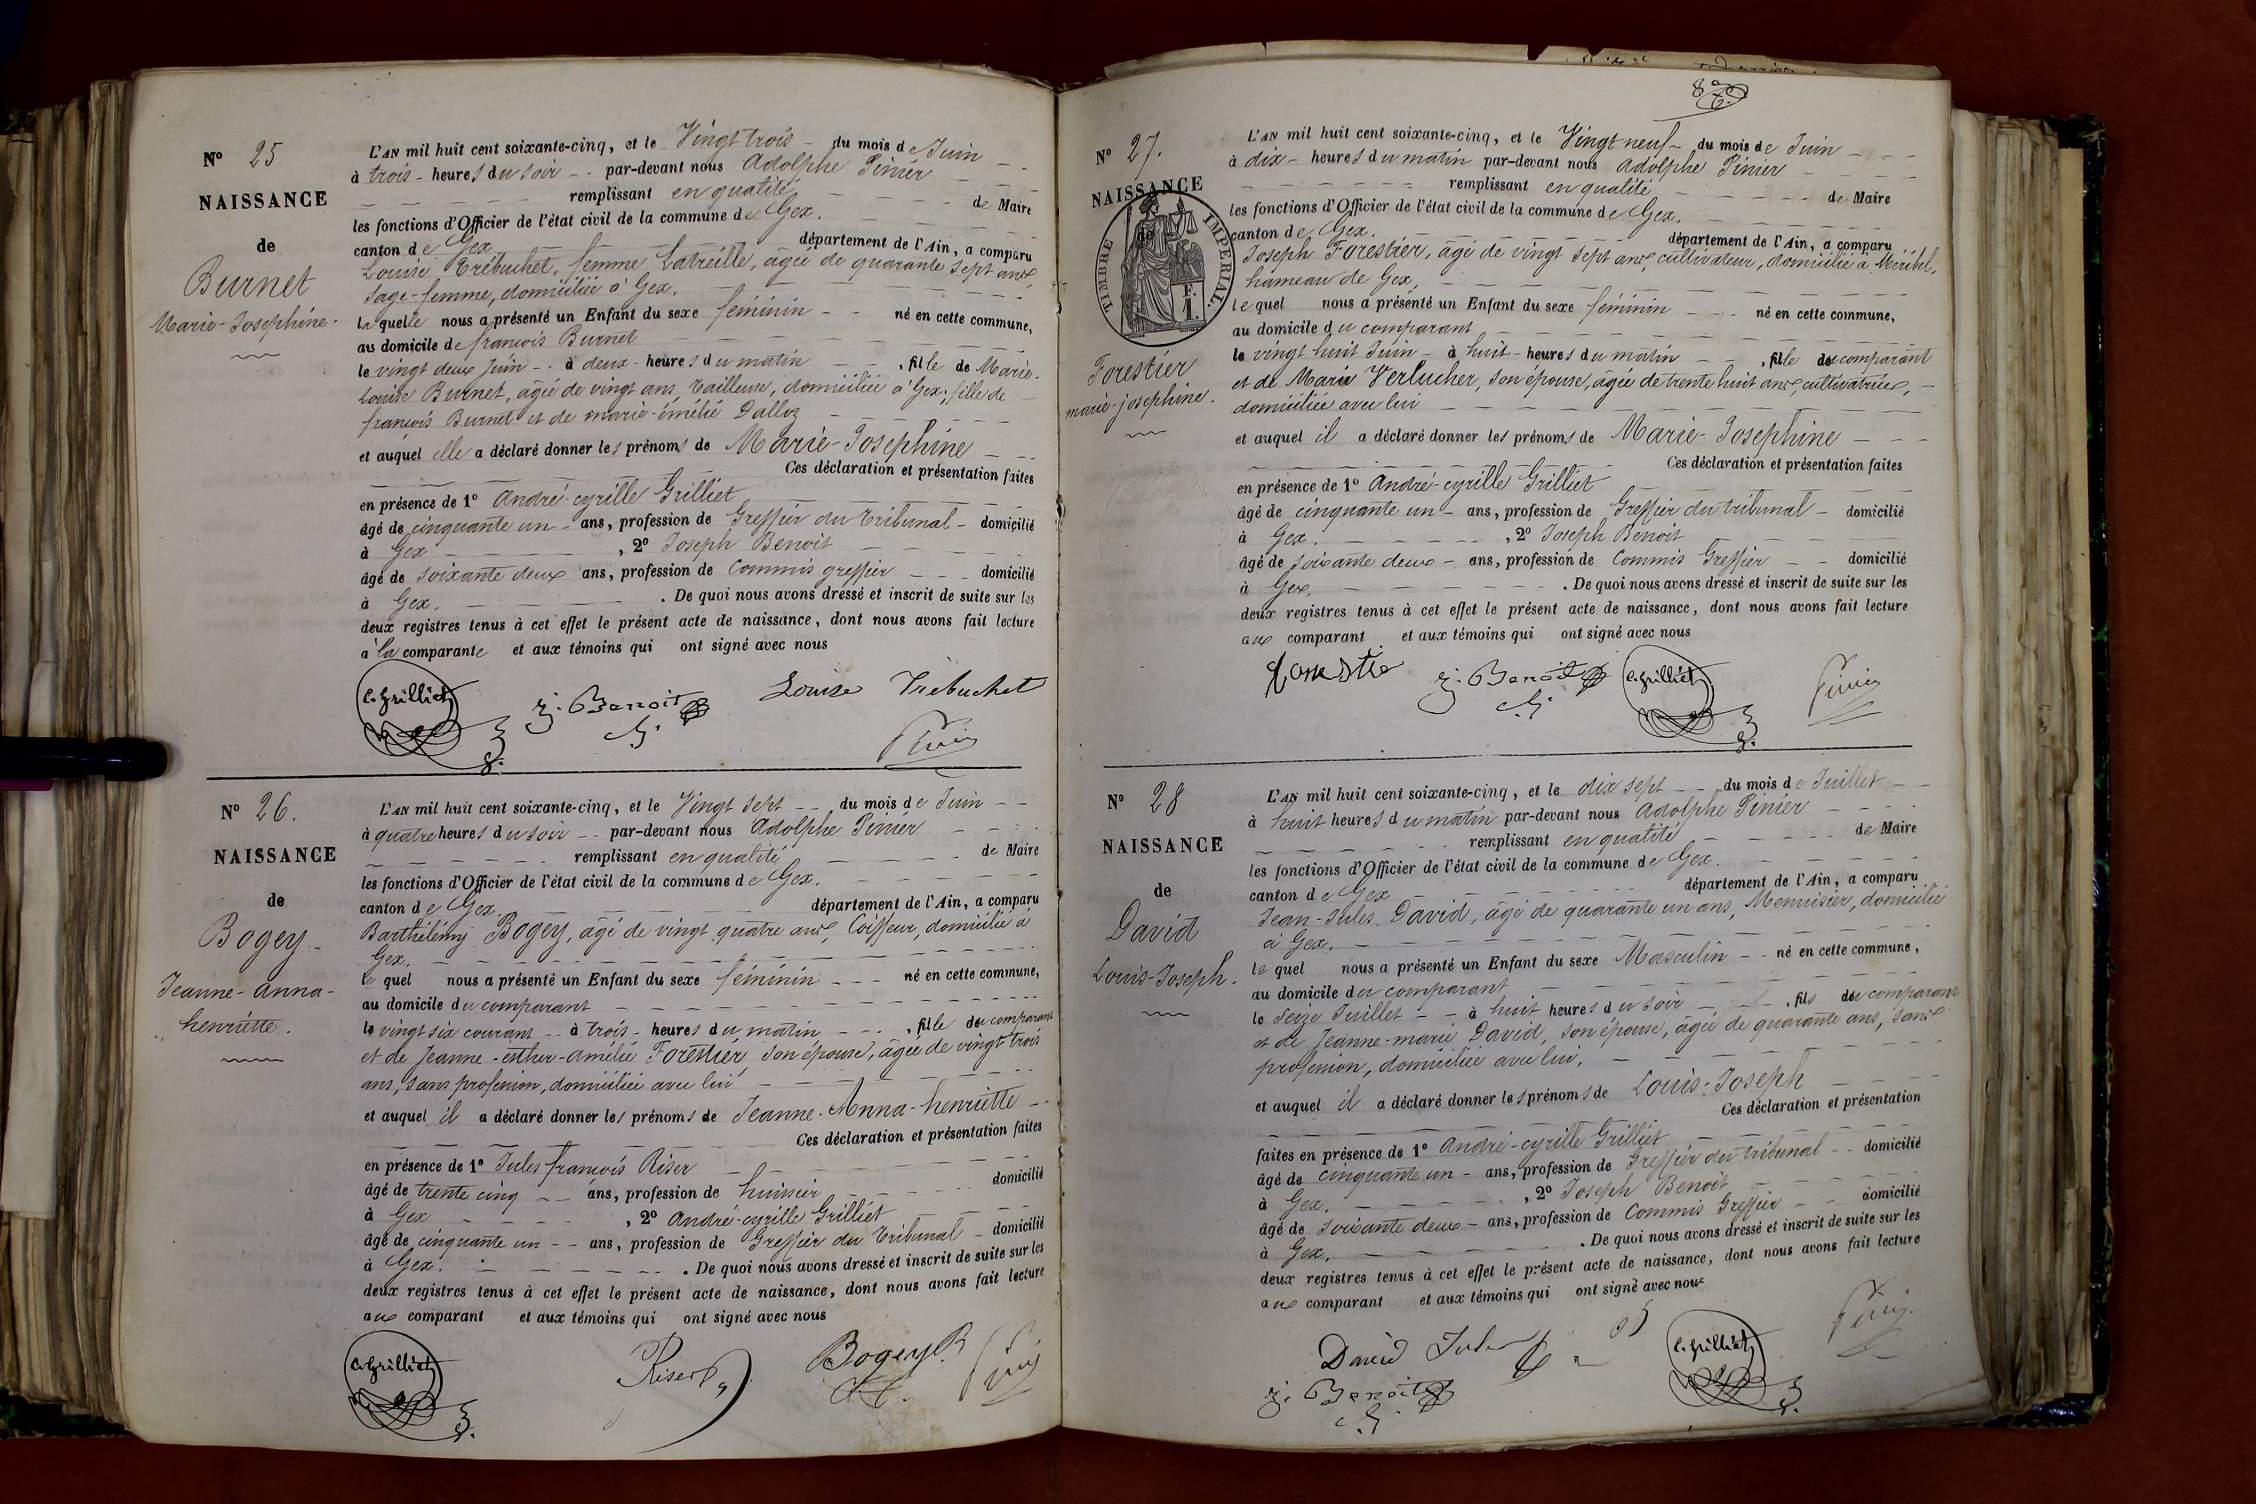 N° 25
NAISSANCE
de
Burnet
Marie-Josephine.
L'AN mil huit cent soixante-cinq, et le Vingt trois du mois de Juin
à trois heures du soir par-devant nous Adolphe Pinier
remplissant en qualité de Maire
les fonctions d'Officier de l'état civil de la commune de Gex.
canton de Gex département de l'Ain, a comparu
Louise Trébuchet, femme Latreille, âgée de quarante sept ans,
Sage-femme, domiciliée à Gex.
laquelle nous a présenté un Enfant du sexe féminin né en cette commune,
au domicile de françois Burnet
le vingt deux Juin à deux heures du matin, fille de Marie-
Louise Burnet, âgée de vingt ans, tailleuse, domiciliée à Gex; fille de
françois Burnet et de marie-émélie Dalloz
et auquel elle a déclaré donner les prénoms de Marie-Josephine
Ces déclaration et présentation faites
en présence de 1° André-cyrille Grilliet
âgé de cinquante un ans, profession de Greffier du tribunal domicilié
à Gex, 2° Joseph Benoit
âgé de soixante deux ans, profession de Commis greffier domicilié
à Gex. . De quoi nous avons dressé et inscrit de suite sur les
deux registres tenus à cet effet le présent acte de naissance, dont nous avons fait lecture
à la comparante et aux témoins qui ont signé avec nous
C. Grilliet
j. Benoit
Louise Trebuchet
Pinier
N° 26.
NAISSANCE
de
Bogey
Jeanne-anna-
henriette.
L'AN mil huit cent soixante-cinq, et le Vingt sept du mois de Juin
à quatre heures du soir par-devant nous Adolphe Pinier
remplissant en qualité de Maire
les fonctions d'Officier de l'état civil de la commune de Gex.
canton de Gex. département de l'Ain, a comparu
Barthélémy Bogey, âgé de vingt quatre ans, Coiffeur, domicilié à
Gex.
lequel nous a présenté un Enfant du sexe féminin né en cette commune,
au domicile du comparant
le vingt six courant à trois heures du matin, fille du comparant
et de Jeanne-esther-amélie Forestier, son épouse, âgée de vingt trois
ans, sans profession, domiciliée avec lui
et auquel il a déclaré donner les prénoms de Jeanne-Anna-henriette
Ces déclaration et présentation faites
en présence de 1° Jules françois Riser
âgé de trente cinq ans, profession de huissier domicilié
à Gex, 2° André-cyrille Grilliet
âgé de cinquante un ans, profession de Greffier du tribunal domicilié
à Gex. . De quoi nous avons dressé et inscrit de suite sur les
deux registres tenus à cet effet le présent acte de naissance, dont nous avons fait lecture
aux comparant et aux témoins qui ont signé avec nous
C. Grilliet
Riser
Bogey B
Pinier
N° 27.
NAISSANCE
de
TIMBRE IMPÉRIAL.
F.
1.
Forestier
marie-josephine.
L'AN mil huit cent soixante-cinq, et le Vingt neuf du mois de Juin
à dix heures du matin par-devant nous Adolphe Pinier
remplissant en qualité de Maire
les fonctions d'Officier de l'état civil de la commune de Gex.
canton de Gex. département de l'Ain, a comparu
Joseph Forestier, âgé de vingt sept ans, cultivateur, domicilié à Méribel,
hameau de Gex,
lequel nous a présenté un Enfant du sexe féminin né en cette commune,
au domicile du comparant
le vingt huit Juin à huit heures du matin, fille du comparant
et de Marie Verlucher, son épouse, âgée de trente huit ans, cultivatrice,
domiciliée avec lui
et auquel il a déclaré donner les prénoms de Marie-Josephine
Ces déclaration et présentation faites
en présence de 1° André-cyrille Grilliet
âgé de cinquante un ans, profession de Greffier du tribunal domicilié
à Gex., 2° Joseph Benoit
âgé de soixante deux ans, profession de Commis Greffier domicilié
à Gex. . De quoi nous avons dressé et inscrit de suite sur les
deux registres tenus à cet effet le présent acte de naissance, dont nous avons fait lecture
aux comparant et aux témoins qui ont signé avec nous
j. Benoit
C. Grilliet
Pinier
N° 28
NAISSANCE
de
David
Louis-Joseph.
L'AN mil huit cent soixante-cinq, et le dix sept du mois de Juillet
à huit heures du matin par-devant nous Adolphe Pinier
remplissant en qualité de Maire
les fonctions d'Officier de l'état civil de la commune de Gex.
canton de Gex département de l'Ain, a comparu
Jean-Jules David, âgé de quarante un ans, Menuisier, domicilié
à Gex.
lequel nous a présenté un Enfant du sexe Masculin né en cette commune,
au domicile du comparant
le Seize Juillet à huit heures du soir, fils du comparant
et de Jeanne-marie David, son épouse, âgée de quarante ans, sans
profession, domiciliée avec lui.
et auquel il a déclaré donner les prénoms de Louis-Joseph
Ces déclaration et présentation
faites en présence de 1° André-cyrille Grilliet
âgé de cinquante un ans, profession de Greffier du tribunal domicilié
à Gex., 2° Joseph Benoit
âgé de soixante deux ans, profession de Commis Greffier domicilié
à Gex. . De quoi nous avons dressé et inscrit de suite sur les
deux registres tenus à cet effet le présent acte de naissance, dont nous avons fait lecture
aux comparant et aux témoins qui ont signé avec nous
David Jules
j. Benoit
C. Grilliet
Pinier